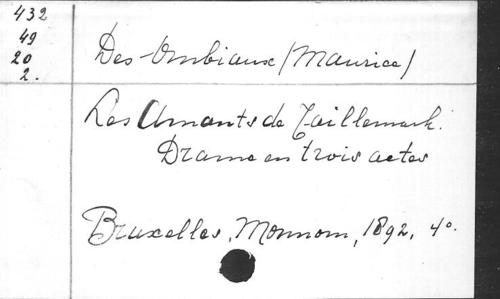 432
49
20
2.
Des Ombiaux (Maurice)
Les Amants de Taillemark.
Drame en trois actes
Bruxelles, Monnom, 1892, 4o.